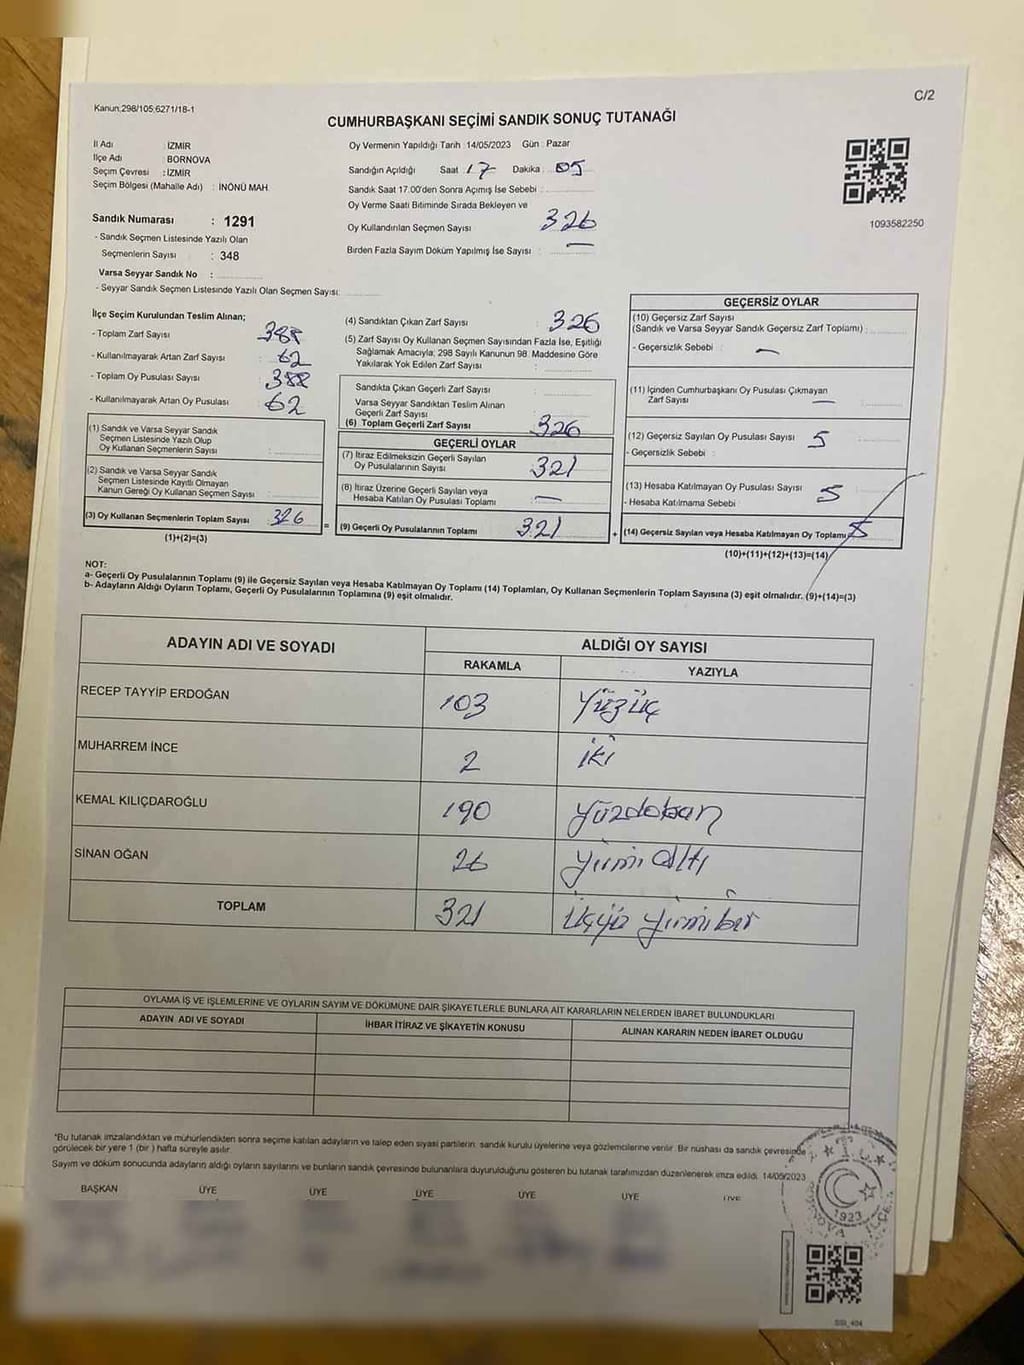 C/2
Kanun:298/105;6271/18-1
CUMHURBAŞKANI SEÇİMİ SANDIK SONUÇ TUTANAĞI
İl Adı : İZMİR
İlçe Adı : BORNOVA
Seçim Çevresi : İZMİR
Seçim Bölgesi (Mahalle Adı) : İNÖNÜ MAH.
Sandık Numarası : 1291
- Sandık Seçmen Listesinde Yazılı Olan
Seçmenlerin Sayısı : 348
Varsa Seyyar Sandık No :
- Seyyar Sandık Seçmen Listesinde Yazılı Olan Seçmen Sayısı:
Oy Vermenin Yapıldığı Tarih : 14/05/2023 Gün : Pazar
Sandığın Açıldığı Saat : 17 Dakika : 05
Sandık Saat 17.00'den Sonra Açımış İse Sebebi :
Oy Verme Saati Bitiminde Sırada Bekleyen ve
Oy Kullandırılan Seçmen Sayısı 326
Birden Fazla Sayım Döküm Yapılmış İse Sayısı : —
1093582250
İlçe Seçim Kurulundan Teslim Alınan;
- Toplam Zarf Sayısı 388
- Kullanılmayarak Artan Zarf Sayısı : 62
- Toplam Oy Pusulası Sayısı : 388
- Kullanılmayarak Artan Oy Pusulası : 62
(1) Sandık ve Varsa Seyyar Sandık
Seçmen Listesinde Yazılı Olup
Oy Kullanan Seçmenlerin Sayısı :
(2) Sandık ve Varsa Seyyar Sandık
Seçmen Listesinde Kayıtlı Olmayan
Kanun Gereği Oy Kullanan Seçmen Sayısı :
(3) Oy Kullanan Seçmenlerin Toplam Sayısı 326
(1)+(2)=(3)
=
(4) Sandıktan Çıkan Zarf Sayısı : 326
(5) Zarf Sayısı Oy Kullanan Seçmen Sayısından Fazla İse, Eşitliği
Sağlamak Amacıyla; 298 Sayılı Kanunun 98. Maddesine Göre
Yakılarak Yok Edilen Zarf Sayısı :
Sandıkta Çıkan Geçerli Zarf Sayısı :
Varsa Seyyar Sandıktan Teslim Alınan
Geçerli Zarf Sayısı :
(6) Toplam Geçerli Zarf Sayısı 326
GEÇERLİ OYLAR
(7) İtiraz Edilmeksizin Geçerli Sayılan
Oy Pusulalarının Sayısı : 321
(8) İtiraz Üzerine Geçerli Sayılan veya
Hesaba Katılan Oy Pusulası Toplamı : —
(9) Geçerli Oy Pusulalarının Toplamı 321
+
GEÇERSİZ OYLAR
(10) Geçersiz Zarf Sayısı
(Sandık ve Varsa Seyyar Sandık Geçersiz Zarf Toplamı) :
- Geçersizlik Sebebi : —
(11) İçinden Cumhurbaşkanı Oy Pusulası Çıkmayan
Zarf Sayısı : —
(12) Geçersiz Sayılan Oy Pusulası Sayısı 5
- Geçersizlik Sebebi :
(13) Hesaba Katılmayan Oy Pusulası Sayısı 5
- Hesaba Katılmama Sebebi :
(14) Geçersiz Sayılan veya Hesaba Katılmayan Oy Toplamı 5
(10)+(11)+(12)+(13)=(14)
NOT:
a- Geçerli Oy Pusulalarının Toplamı (9) ile Geçersiz Sayılan veya Hesaba Katılmayan Oy Toplamı (14) Toplamları, Oy Kullanan Seçmenlerin Toplam Sayısına (3) eşit olmalıdır. (9)+(14)=(3)
b- Adayların Aldığı Oyların Toplamı, Geçerli Oy Pusulalarının Toplamına (9) eşit olmalıdır.
ADAYIN ADI VE SOYADI ALDIĞI OY SAYISI
RAKAMLA YAZIYLA
RECEP TAYYİP ERDOĞAN 103 Yüzüç
MUHARREM İNCE 2 iki
KEMAL KILIÇDAROĞLU 190 yüzdoksan
SİNAN OĞAN 26 yirmi altı
TOPLAM 321 üçyüz yirmibir
OYLAMA İŞ VE İŞLEMLERİNE VE OYLARIN SAYIM VE DÖKÜMÜNE DAİR ŞİKAYETLERLE BUNLARA AİT KARARLARIN NELERDEN İBARET BULUNDUKLARI
ADAYIN ADI VE SOYADI İHBAR İTİRAZ VE ŞİKAYETİN KONUSU ALINAN KARARIN NEDEN İBARET OLDUĞU
*Bu tutanak imzalandıktan ve mühürlendikten sonra seçime katılan adayların ve talep eden siyasi partilerin, sandık kurulu üyelerine veya gözlemcilerine verilir. Bir nüshası da sandık çevresinde
görülecek bir yere 1 (bir ) hafta süreyle asılır.
Sayım ve döküm sonucunda adayların aldığı oyların sayılarını ve bunların sandık çevresinde bulunanlara duyurulduğunu gösteren bu tutanak tarafımızdan düzenlenerek imza edildi. 14/05/2023
BAŞKAN ÜYE ÜYE ÜYE ÜYE ÜYE ÜYE
T.C.
1923